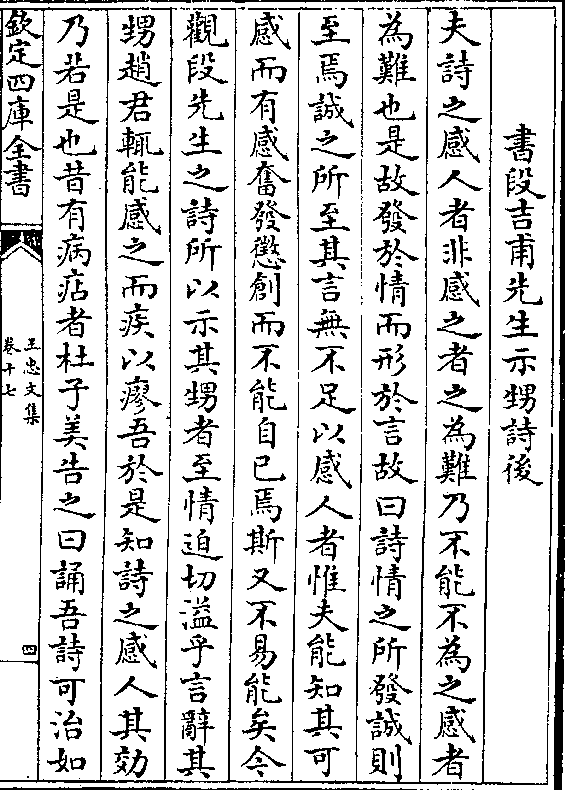 書段吉甫先生示甥詩後
夫詩之感人者非感之者之為難乃不能不為之感者
為難也是故發於情而形於言故曰詩情之所發誠則
至焉誠之所至其言無不足以感人者惟夫能知其可
感而有感奮發懲創而不能自已焉斯又不易能矣今
觀段先生之詩所以示其甥者至情迫切溢乎言辭其
甥趙君輒能感之而疾以瘳吾於是知詩之感人其効
乃若是也昔有病痁者杜子美告之曰誦吾詩可治如
欽定四庫全書
王忠文集
卷十七
四